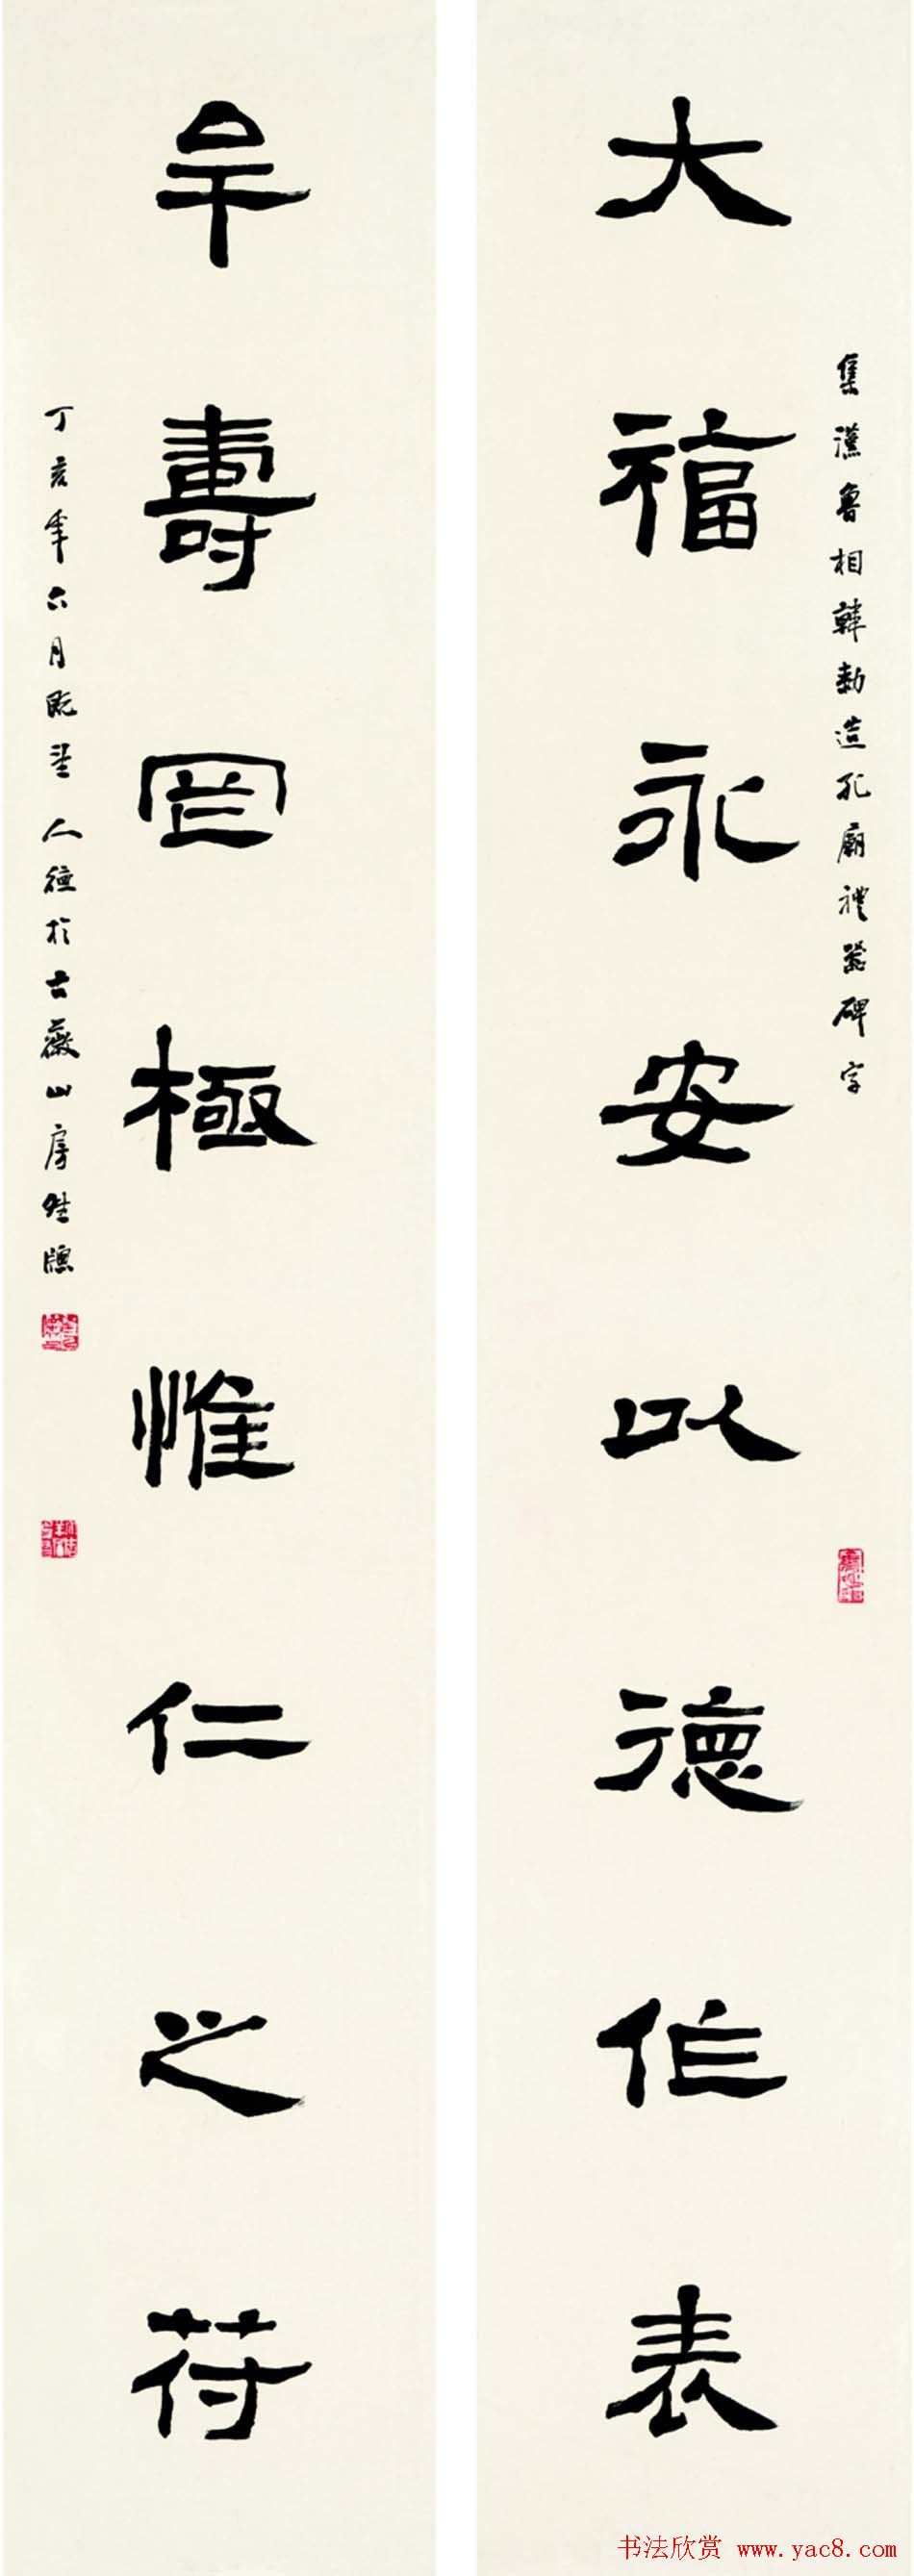 集漢魯相韓勑造孔廟禮器碑字
大福永安以德作表
牟壽罔極惟仁之苻
丁亥年六月既望人德於古薇山房牖
书法欣赏 www.yac8.com